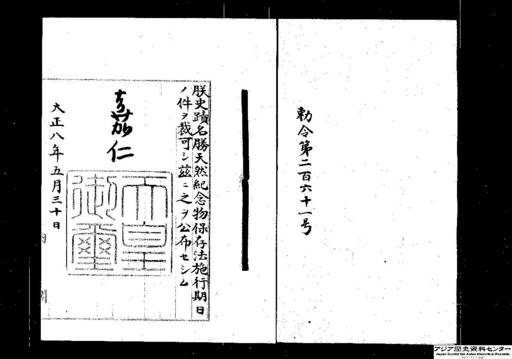 勅令第二百六十一号
朕史蹟名勝天然紀念物保存法施行期日
ノ件ヲ裁可シ茲ニ之ヲ公布セシム
嘉仁
天皇御璽
大正八年五月三十日
アジア歴史資料センター
Japan Center for Asian Historical Records